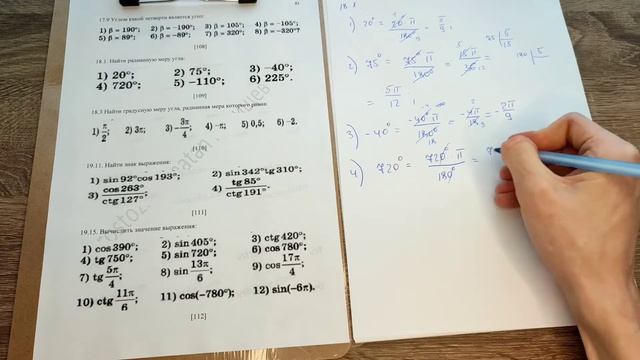 17.9 Углем какой четверти является угол:
1) β = 190°; 2) β = −190°; 3) β = 105°; 4) β = −105°;
5) β = 89°; 6) β = −89°; 7) β = 320°; 8) β = −320°?
[108]
18.1. Найти радианную меру угла:
1) 20°; 2) 75°; 3) −40°;
4) 720°; 5) −110°; 6) 225°.
[109]
18.3 Найти градусную меру угла, радианная мера которого равна:
1) π/2; 2) 3π; 3) −3π/4; 4) −π; 5) 0,5; 6) −2.
[110]
19.11. Найти знак выражения:
1) sin 92°cos 193°; 2) sin 342°tg 310°;
3) cos 263°/ctg 127°; 4) tg 85°/ctg 191°.
[111]
19.15. Вычислить значение выражения:
1) cos 390°; 2) sin 405°; 3) ctg 420°;
4) tg 750°; 5) sin 720°; 6) cos 780°;
7) tg 5π/4; 8) sin 13π/6; 9) cos 17π/4;
10) ctg 11π/6; 11) cos(−780°); 12) sin(−6π).
[112]
1) 20° = 20° π/180° 9 = π/9;
2) 75° = 75° π/180° = 15 π/12
= 5π/12;
3) −40° = −40° π/180° 18 = −4π/18 9 = −2π/9
4) 720° = 720° π/180° =